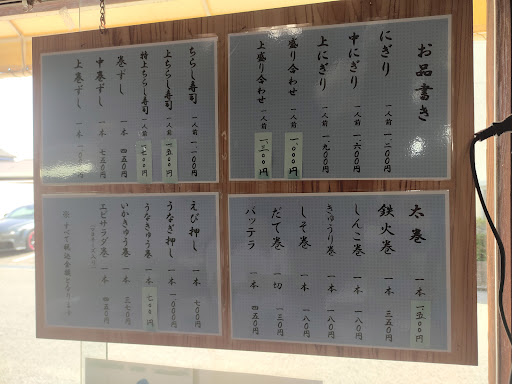 お品書き
にぎり 一人前 一、二〇〇円
中にぎり 一人前 一、六〇〇円
上にぎり 一人前 一、九〇〇円
盛り合わせ 一人前 一、〇〇〇円
上盛り合わせ 一人前 一、三〇〇円
ちらし寿司 一人前 一、一〇〇円
上ちらし寿司 一人前 一、五〇〇円
特上ちらし寿司 一人前 一、七〇〇円
巻ずし 一本 四五〇円
中巻ずし 一本 七五〇円
上巻ずし 一本
太巻 一本 一、五〇〇円
鉄火巻 一本 三五〇円
しんこ巻 一本 一八〇円
きゅうり巻 一本 一八〇円
しそ巻 一本 一八〇円
だて巻 一切 一三〇円
バッテラ 一本 四五〇円
えび押し 一本 七〇〇円
うなぎ押し 一本 一、〇〇〇円
うなきゅう巻 一本 七〇〇円
いかきゅう巻 一本 三七〇円
エビサラダ巻 一本 四五〇円
※すべて税込金額となります